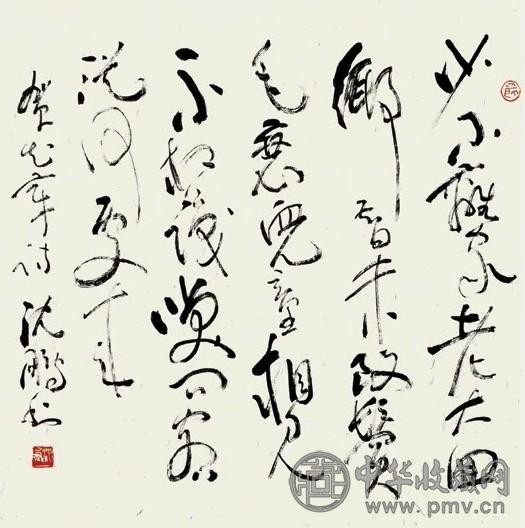 少小離家老大回
鄉音未改鬢
毛衰兒童相見
不相識笑问客
從何處来
贺知章诗 沈鹏书
中华收藏网
www.pmv.cn